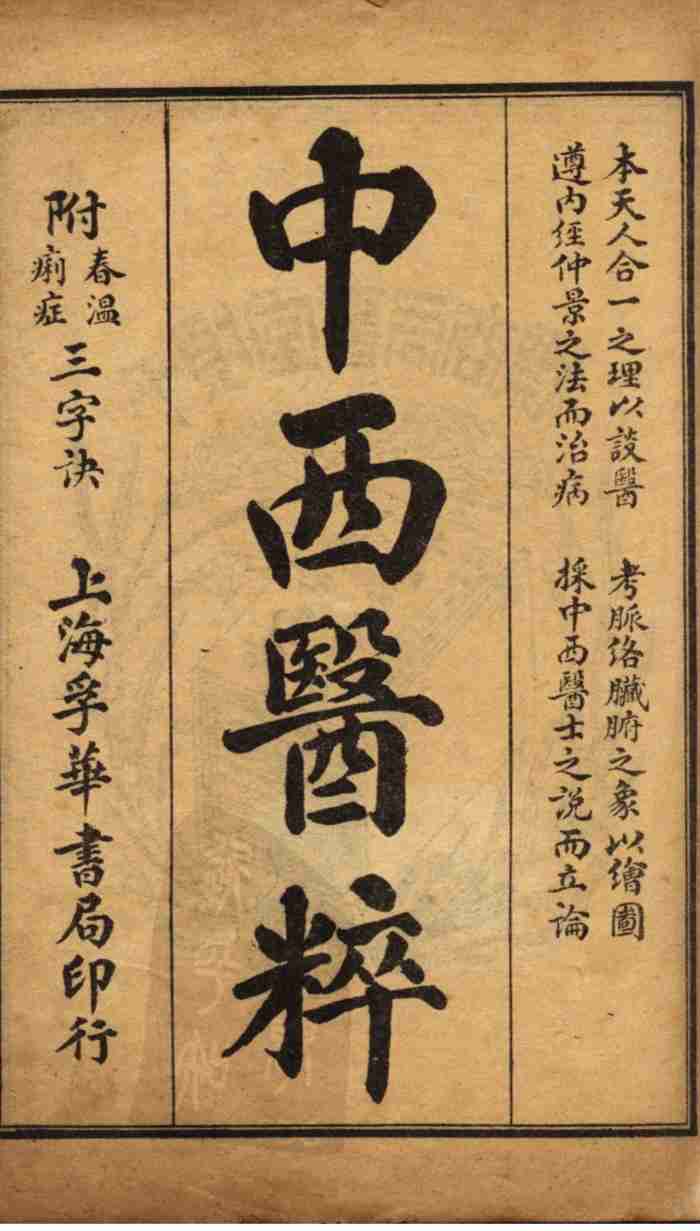 本天人合一之理以談醫　考脈絡臟腑之象以繪圖
遵內經仲景之法而治病　採中西醫士之說而立論
中西醫粹
附春溫痢症三字訣　上海孚華書局印行